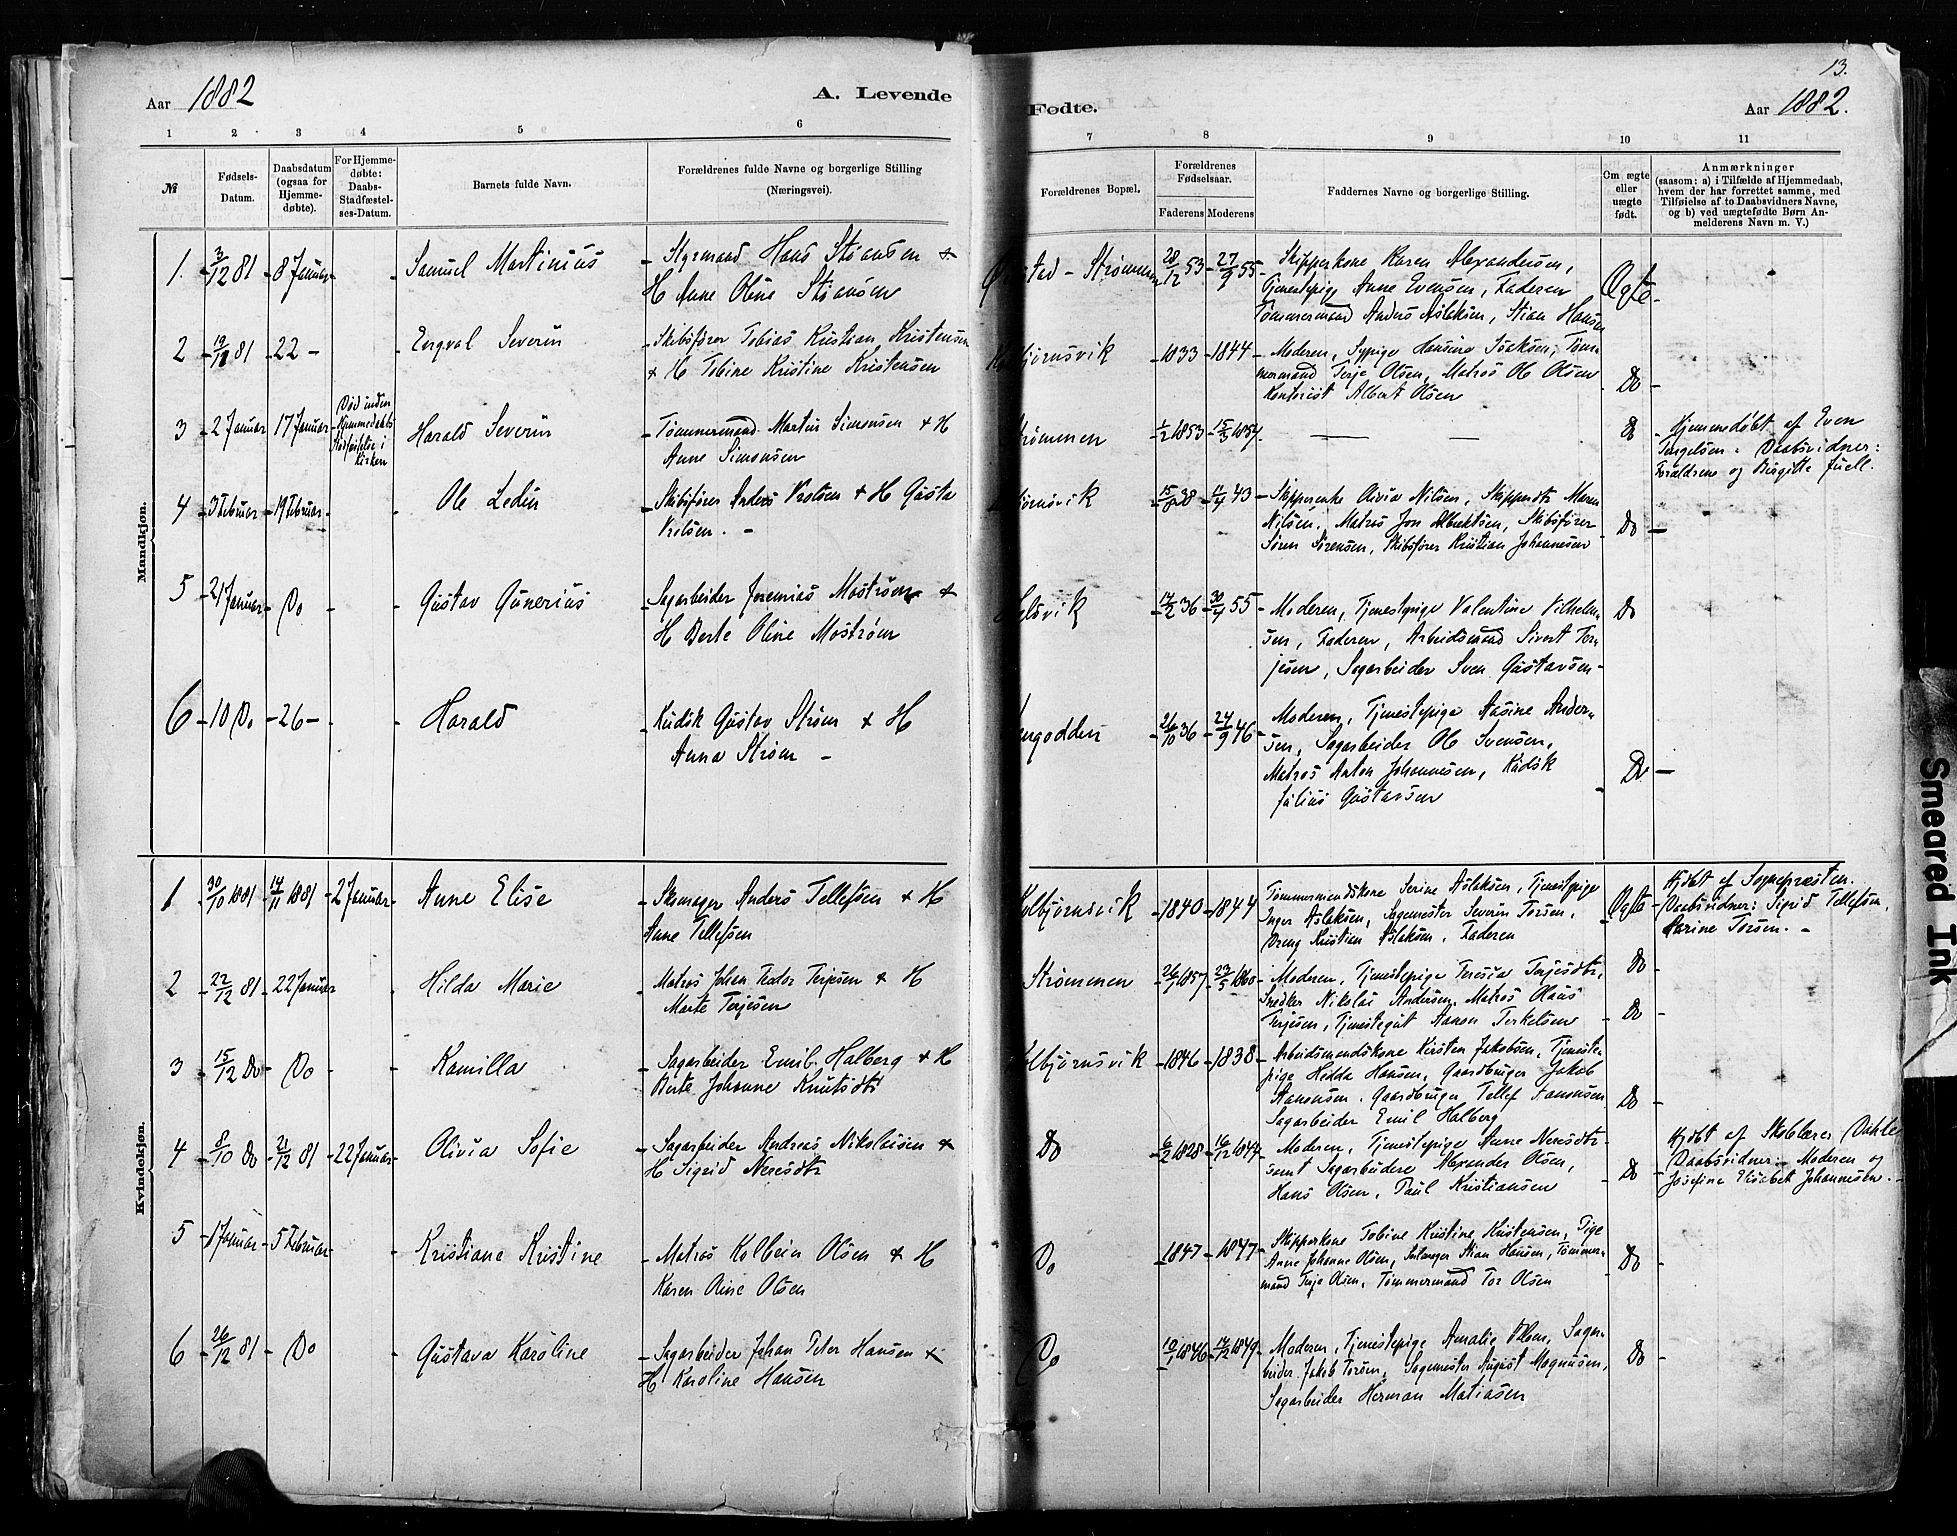 13.
Aar 1882
A. Levende
Fødte.
Aar 1882.
1 2 3 4 5 6
7 8 9 10 11
№
Fødsels-
Datum.
Daabsdatum
(ogsaa for
Hjemme-
døbte).
For Hjemme-
døbte:
Daabs-
Stadfæstel-
ses-Datum.
Barnets fulde Navn.
Forældrenes fulde Navne og borgerlige Stilling
(Næringsvei).
Forældrenes Bopæl,
Forældrenes
Fødselsaar.
Faderens Moderens
Faddernes Navne og borgerlige Stilling.
Om ægte
eller
uægte
født.
Anmærkninger
(saasom: a) i Tilfælde af Hjemmedaab,
hvem der har forrettet samme, med
Tilføielse af to Daabsvidners Navne,
og b) ved uægtefødte Børn An-
melderens Navn m. V.)
Mandkjøn.
1. 3/12 81 8 Januar
Samuel Martinius
Styrmand Hans Stiansen +
H Anne Oline Stiansen
Strømmen
28/12 53 27/9 55
Skipperkone Karen Alexandersen,
Tjenestepige Anne Evensen, Faderen
Tømmermand Anders Aslaksen, Stian Hansen
Ægte
2 81 22 –
Engval Severin
Skibsfører Tobias Kristian Kristensen
+ H Tobine Kristine Kristensen
bjørnsvik
1833 1844
Moderen, Sypige Hansine Isaksen, Tøm-
mermand Terje Olsen, Matros Ole Olsen
Kontorist Albert Olsen
Do
3 2 Januar 17 Januar
Død inden
Hjemmedaabs
Stadfæstelse i
Kirken
Harald Severin
Tømmermand Martin Simonsen + H
Anne Simonsen
Strømmen
1/2 1853 15/3 1857
— —
Do
Hjemmedøbt af Even
Tengelsen. Daabsvidner:
Forældrene og Birgitte Juell.
4 3 Februar 19 Februar
Ole Ledin
Skibsfører Anders Nilsen + H Gusta
Nilsen. –
bjørnsvik
38 11/4 43
Skipperenke Olivia Nilsen, Skipperdtr Maren
Nilsen, Matros Jon Albrektsen, Skibsfører
Søren Sørensen, Skibsfører Kristian Johannesen
Do
5 21 Januar Do
Gustav Gunerius
Sagarbeider Jeremias Mostrøm +
H Berte Oline Mostrøm
svik
17/2 36 30/4 55
Moderen, Tjenestepige Valentine Vilhelm-
sen, Faderen, Arbeidsmand Sivert Ter-
jesen, Sagarbeider Sven Gustavsen
Do
6 10 Do 26 –
Harald
Kudsk Gustav Strøm + H
Anna Strøm –
ngodden
26/10 36 24/9 46
Moderen, Tjenestepige Aasine Ander-
sen, Sagarbeider Ole Svensen,
Matros Anton Johannesen, Kudsk
Julius Gustavsen
Do
Kvindekjøn.
1 30/10 1881 14/11 1881 2 Januar
Anne Elise
Skomager Anders Tellefsen + H
Anne Tellefsen
Kolbjørnsvik
1840 1844
Tømmermandskone Serine Aslaksen, Tjenestepige
Inger Aslaksen, Sagmester Severin Torsen,
Dreng Kristian Aslaksen, Faderen
Ægte
Hjdbt af Sognepræsten.
Daabsvidner: Sigrid Tellefsen,
Karine Torsen. –
2 22/12 81 22 Januar
Hilda Marie
Matros Johan Teodor Terjesen + H
Marte Terjesen
Strømmen
26/1 1857 23/5 1860
Moderen, Tjenestepige Teresia Terjesdtr,
Snedker Nikolai Andersen, Matros Olaus
Terjesen, Tjenestegut Aanon Terkelsen
Do
Do
3 15/12 Do Do
Kamilla
Sagarbeider Emil Halberg + H
Berte Johanne Knutsdtr
olbjørnsvik
1846 1838
Arbeidsmandskone Kirsten Jakobsen, Tjeneste-
pige Hilda Hansen, Gaardbruger Jakob
Aanonsen, Gaardbruger Tellef Aanonsen
Sagarbeider Emil Halberg
Do
4 8/10 Do 21/12 81 22 Januar
Olivia Sofie
Sagarbeider Andreas Nikolaisen +
H Sigrid Neresdtr
Do
6/2 1828 16/12 1847
Moderen, Tjenestepige Anne Neresdtr
samt Sagarbeidere Alexander Olsen,
Hans Olsen, Paul Kristiansen
Do
Hjdbt af Skolelærer Dahle
Daabsvidner: Moderen og
Josefine Elisabet Johannesen. –
5 1 Januar 5 Februar
Kristiane Kristine
Matros Kolbein Olsen + H
Karen Oline Olsen
Do
1847 1847
Skipperkone Tobine Kristine Kristensen, Pige
Anne Johanne Olsen, Stian Hansen, Tømmer-
mand Terje Olsen, Tømmermand Tor Olsen
Do
6 26/12 81 Do
Gustava Karoline
Sagarbeider Johan Peter Hansen +
H Karoline Hansen
Do
10/1 1846 17/12 1849
Moderen, Tjenestepige Amalie Olsen, Sagar-
beider Jakob Torsen, Sagmester August Magnusen,
Sagarbeider Herman Matiasen
Do
Smeared Ink